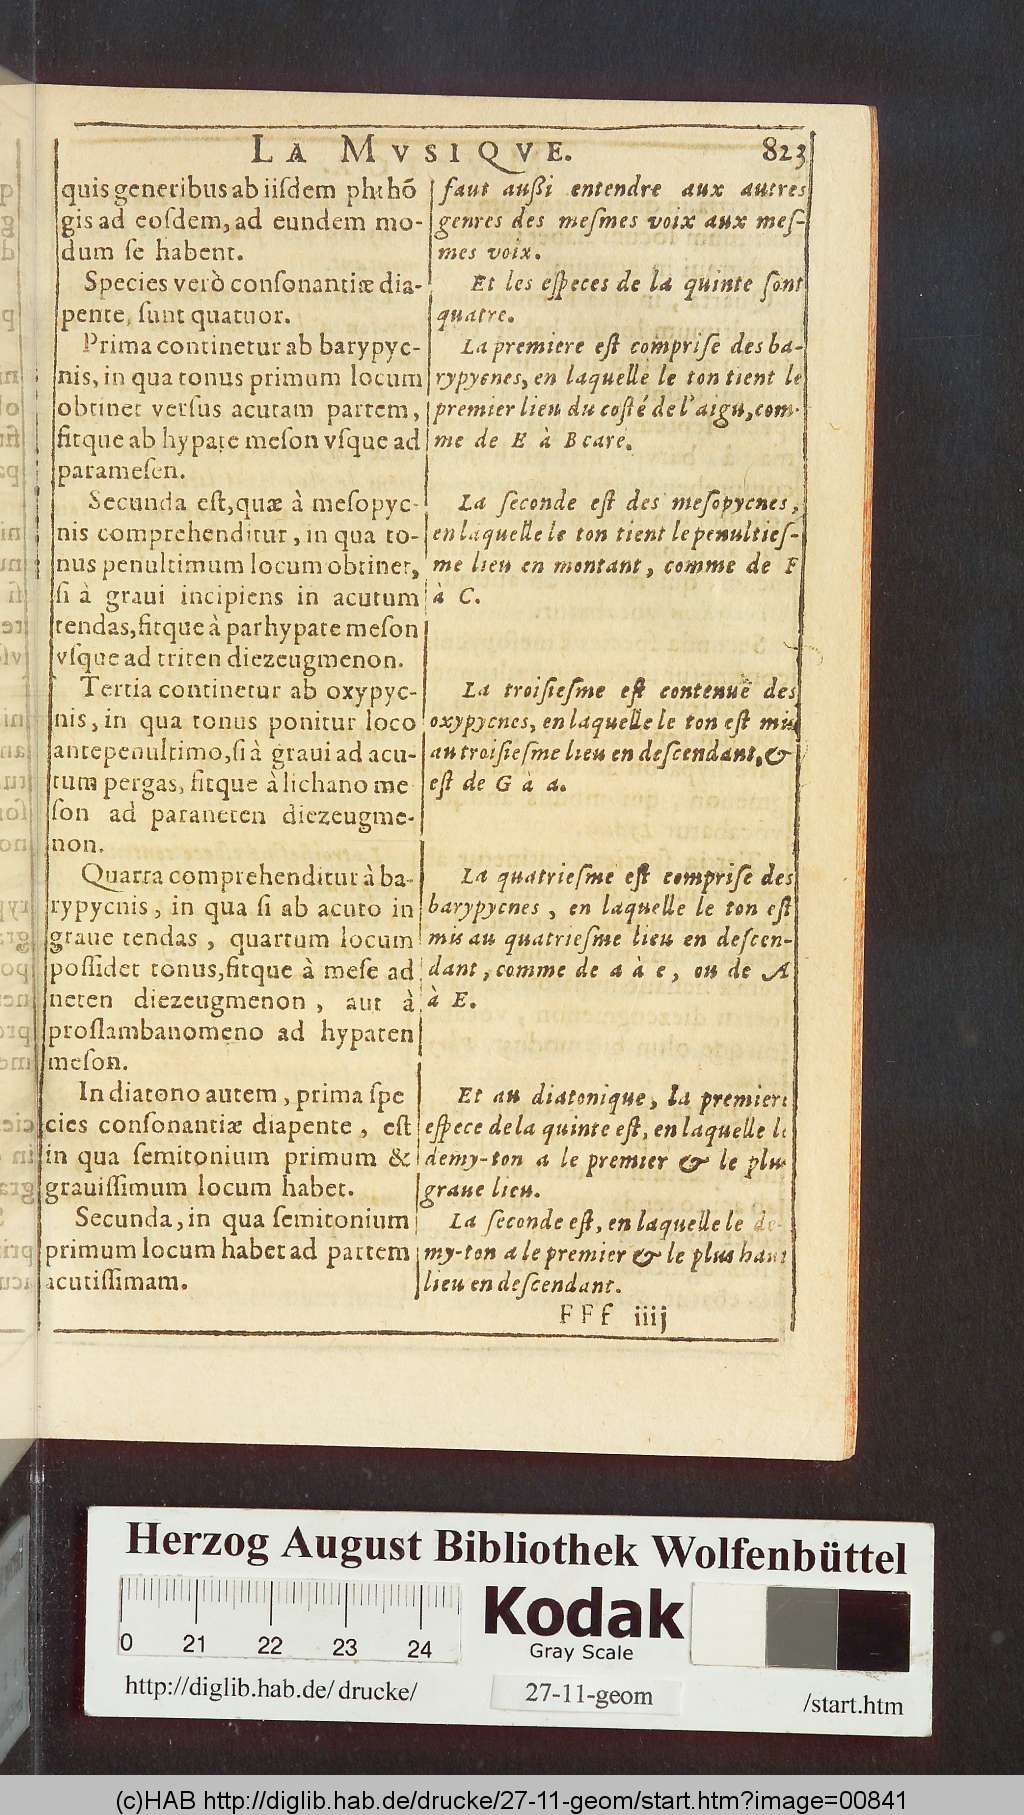 LA MVSIQVE. 823
quis generibus ab iisdem phthõ
gis ad eosdem, ad eundem mo-
dum se habent.
Species verò consonantiæ dia-
pente, sunt quatuor.
Prima continetur ab barypyc-
nis, in qua tonus primum locum
obtinet versus acutam partem,
fitque ab hypate meson vsque ad
paramesen.
Secunda est, quæ à mesopyc-
nis comprehenditur, in qua to-
nus penultimum locum obtinet,
si à graui incipiens in acutum
tendas, fitque à parhypate meson
vsque ad triten diezeugmenon.
Tertia continetur ab oxypyc-
nis, in qua tonus ponitur loco
antepenultimo, si à graui ad acu-
tum pergas, fitque à lichano me
son ad paraneten diezeugme-
non.
Quarta comprehenditur à ba-
rypycnis, in qua si ab acuto in
graue tendas, quartum locum
possidet tonus, fitque à mese ad
neten diezeugmenon, aut à
proslambanomeno ad hypaten
meson.
In diatono autem, prima spe
cies consonantiæ diapente, est
in qua semitonium primum &
grauissimum locum habet.
Secunda, in qua semitonium
primum locum habet ad partem
acutissimam.
faut aussi entendre aux autres
genres des mesmes voix aux mes-
mes voix.
Et les especes de la quinte sont
quatre.
La premiere est comprise des ba-
rypycnes, en laquelle le ton tient le
premier lieu du costé de l'aigu, com-
me de E à B care.
La seconde est des mesopycnes,
en laquelle le ton tient le penulties-
me lieu en montant, comme de F
à C.
La troisiesme est contenuë des
oxypycnes, en laquelle le ton est mis
au troisiesme lieu en descendant, &
est de G à a.
La quatriesme est comprise des
barypycnes, en laquelle le ton est
mis au quatriesme lieu en descen-
dant, comme de a à e, ou de A
à E.
Et au diatonique, la premiere
espece de la quinte est, en laquelle le
demy-ton a le premier & le plus
graue lieu.
La seconde est, en laquelle le de-
my-ton a le premier & le plus haut
lieu en descendant.
FFf iiij
Herzog August Bibliothek Wolfenbüttel
0 21 22 23 24
Kodak
Gray Scale
http://diglib.hab.de/drucke/ 27-11-geom /start.htm
(c)HAB http://diglib.hab.de/drucke/27-11-geom/start.htm?image=00841